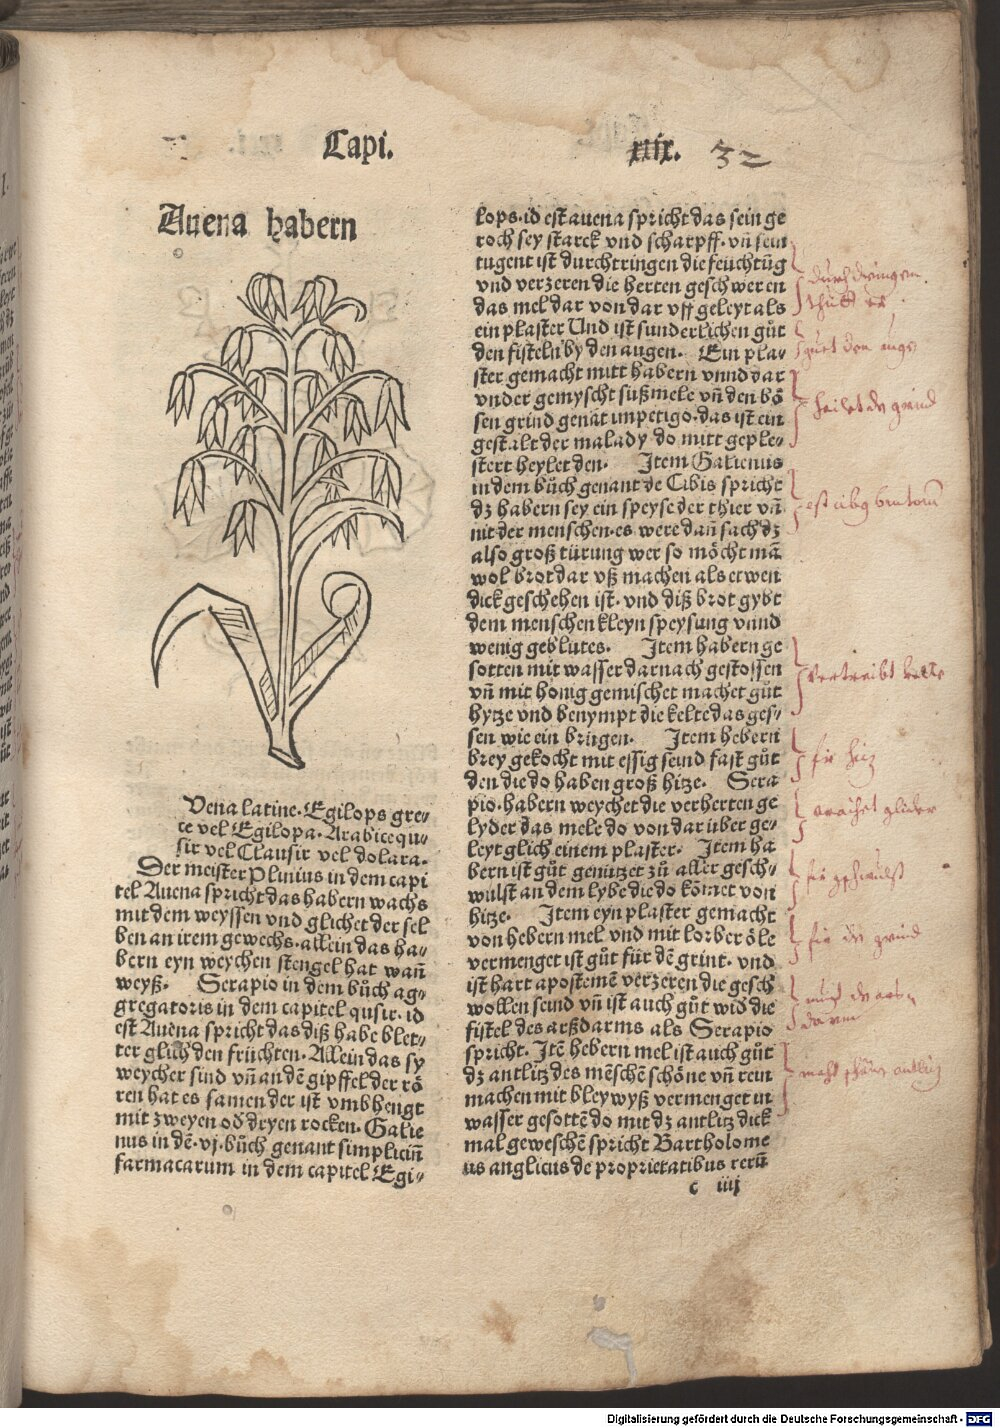 Capi. xxix. 32
Auena habern
Vena latine. Egilops gre⸗
ce vel Egilopa. Arabice qu⸗
sir vel Clausir vel dolara.
Der meister Plinius in dem capi
tel Auena spricht das habern wachs
mit dem weyssen vnd glichet der sel
ben an irem gewechs. allein das ha⸗
bern eyn weychen stengel hat wañ
weyß. Serapio in dem bůch ag⸗
gregatoris in dem capitel qusir. id
est Auena spricht das diß habe blet⸗
ter glich den früchten. Allein das sy
weycher sind vñ an dē gipffel der rö
ren hat es samen der ist vmbhengt
mit zweyen oď dryen rocken. Galie
nus in dē .vj. bůch genant simpliciū
farmacarum in dem capitel Egi⸗
lops. id est auena spricht das sein ge
roch sey starck vnd scharpff. vñ sein
tugent ist durchtringen die feuchtūg
vnd verzeren die herten geschweren
das mel dar von dar vff geleyt als
ein plaster Und ist sunderlichen gůt
den fisteln by den augen. Ein pla⸗
ster gemacht mitt habern vnnd dar
vnder gemyscht süßmele vñ den bö
sen grind genāt impetigo. das ist ein
gestalt der malady do mitt geple⸗
stert heylet den. Item Galienus
in dem bůch genant de Cibis spricht
dz habern sey ein speyse der thier vñ
nit der menschen. es were dañ sach dz
also groß türung wer so möcht mā
wol brot dar vß machen als etwen
dick geschehen ist. vnd diß brot gybt
dem menschen kleyn speysung vnnd
wenig geblutes. Item habern ge
sotten mit wasser darnach gestossen
vñ mit honig gemischet machet gůt
hytze vnd benympt die kelte das ges⸗
sen wie ein brügen. Item hebern
brey gekocht mit essig seind fast gůt
den die do haben groß hitze. Sera
pio. habern weychet die verherten ge
lyder das mele do von dar über ge⸗
leyt glich einem plaster. Item ha
bern ist gůt genützet zů aller gesch⸗
wulst an dem lybe die do kōmet von
hitze. Item eyn plaster gemacht
von hebern mel vnd mit lorber öle
vermenget ist gůt für dē grint. vnd
ist hart apostemē verzeren die gesch
wollen seind vñ ist auch gůt wiď die
fistel des arßdarms als Serapio
spricht. Itē hebern mel ist auch gůt
dz antlitz des mēschē schöne vñ rein
machen mit bleywyß vermenget in
wasser gesottē do mit dz antlitz dick
mal geweschē spricht Bartholome
us anglicus de proprietatibus rerū
c iiij
durch dringen
thutt er
guet den augē
heilet dē grind
est cibus brutorū
vertreibt kelte
für hiz
waichet glider
für gschwulst
für dē grind
macht schön antlitz
Digitalisierung gefördert durch die Deutsche Forschungsgemeinschaft - DFG